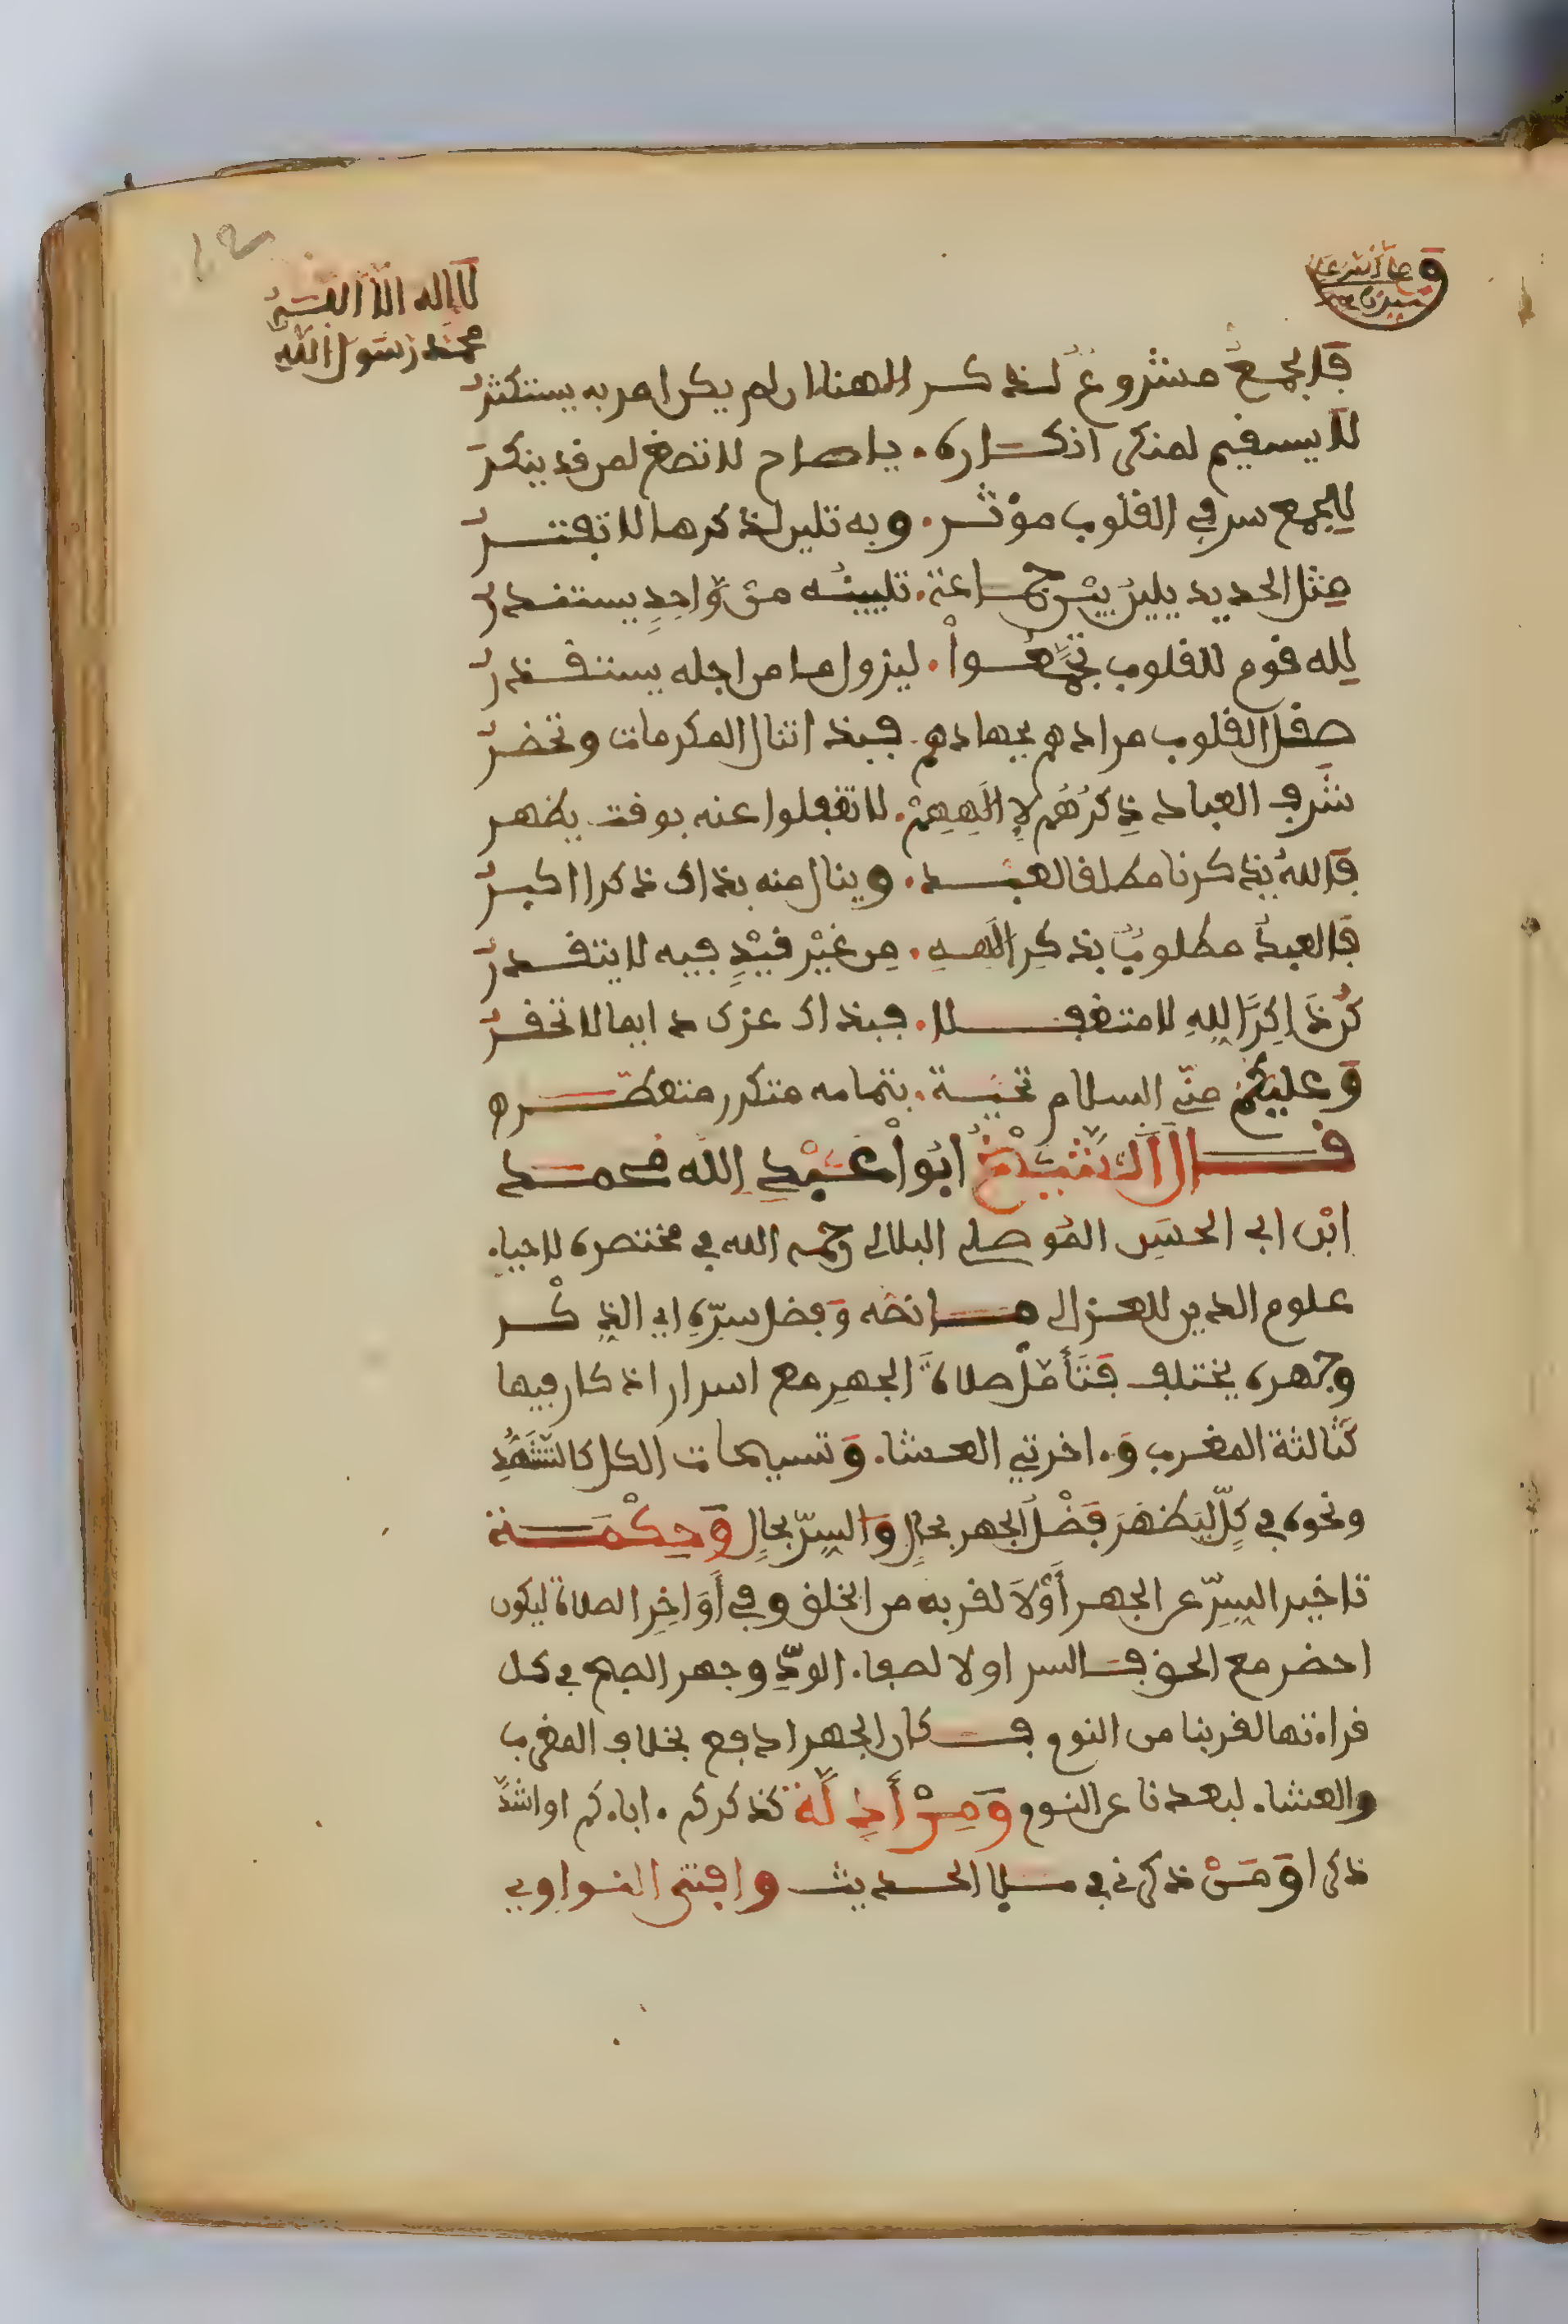 لا إله إلا الله
محمد رسول الله
فالجمع مشروع لذكر إلهنا ان لم يكن امر به يستكثر
لا يستقيم لمنكر اذكاره. يا صاح لا تصغ لمن قد ينكر
للجمع سر في القلوب مؤثر. وبه تلين لذكرها لا تفتر
مثل الحديد يلين بين جماعة. تليينه من واحد يستقذر
لله قوم للقلوب تجمعوا. ليزول ما من اجله يستقذر
صقل القلوب مرادهم بجهادهم. فبذا تنال المكرمات وتحضر
شرف العباد ذكرهم لإلههم. لا تغفلوا عنه بوقت يظهر
فالله يذكرنا مطلقا لعبده. وينال منه بذاك ذكرا اكبر
فالعبد مطلوب بذكر إلهه. من غير قيد فيه لا يتقدر
كن ذاكرا لله لا متغفلا. فبذاك عزك دايما لا تحقر
وعليكم مني السلام تحية. بتمامه متكرر متعطر ه
قال الشيخ ابوا عبد الله محمد
ابن ابي الحسن الموصلي البلالي رحمه الله في مختصره لاحياء
علوم الدين للغزالي ما نصه وفضل سره اي الذكر
وجهره يختلف فتأمل صلاة الجهر مع اسرار اذكار فيها
كثالثة المغرب واخرتي العشاء. وتسبيحات الكل كالتشهد
ونحوه في كل ليظهر فضل الجهر بحال والسر بحال وحكمة
تاخير السر عن الجهر أولا لقربه من الخلق وفي أواخر الصلاة ليكون
احضر مع الحق فالسر اولا لصفاء الود وجهر الصبح في كل
قراءتها لقربنا من النوم فكان الجهر ادفع بخلاف المغرب
والعشاء. لبعدنا عن النوم ومن أدلة كذكركم ءاباءكم او اشد
ذكرا ومن ذكرني في ملإ الحديث وافتى النواوي